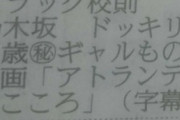 ラック校則
乃木坂　ドッキリ
歳㊙ギャルもの
画「アトランテ
こころ」（字幕